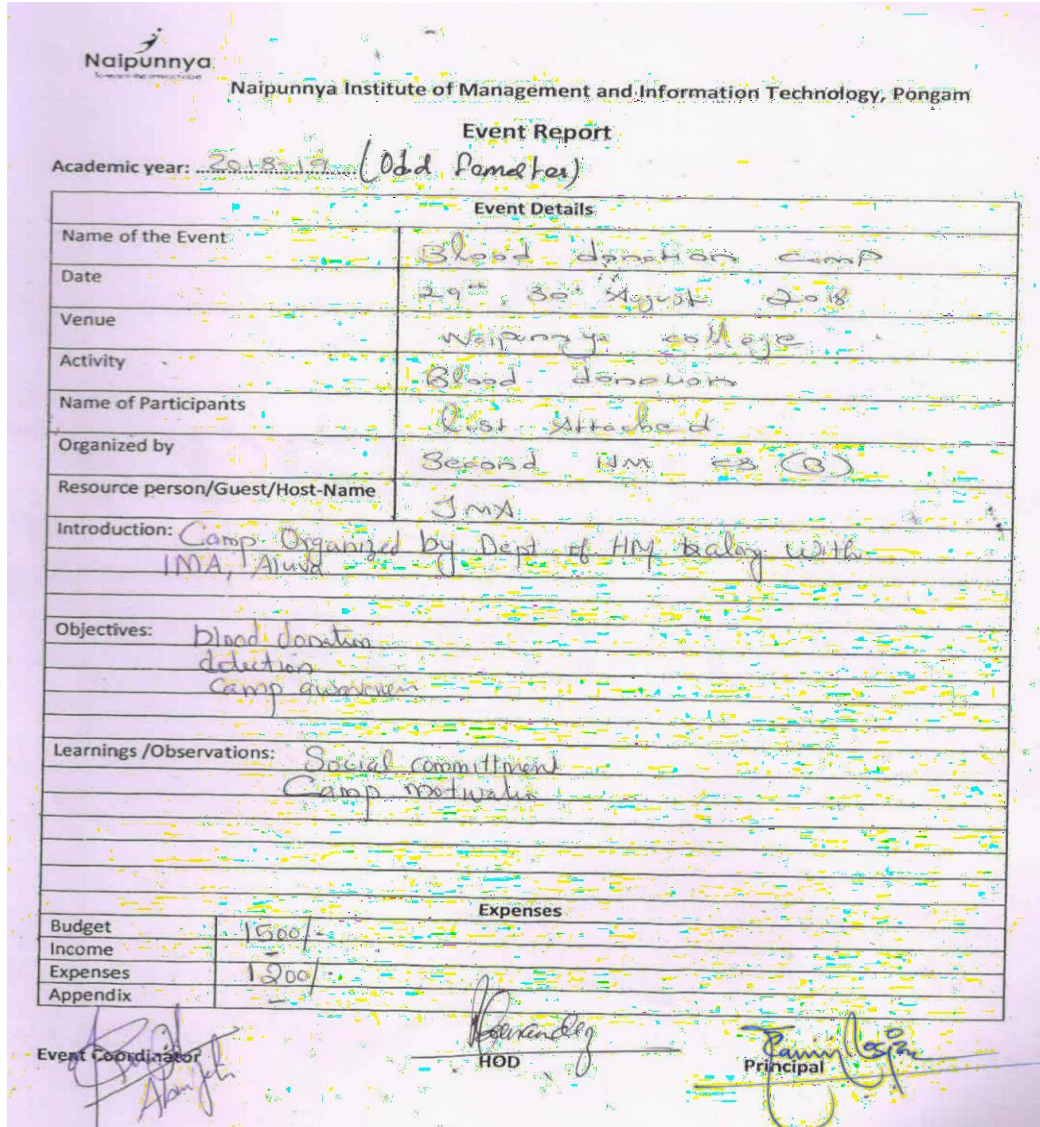 Naipunnya
Naipunnya Institute of Management and Information Technology, Pongam
Event Report
Academic year: 2018-19 (Odd Semester)
Event Details
Name of the Event Blood donation camp
Date 29th, 30th August 2018
Venue Naipunnya college
Activity Blood donation
Name of Participants List Attached
Organized by Second HM (B)
Resource person/Guest/Host-Name IMA
Introduction: Camp Organized by Dept of HM with
IMA, Aluva
Objectives: blood donation
detection
Camp awareness
Learnings /Observations: Social committment
Camp motivation
Expenses
Budget 1500/-
Income -
Expenses 1200/-
Appendix -
Event Coordinator HOD Principal